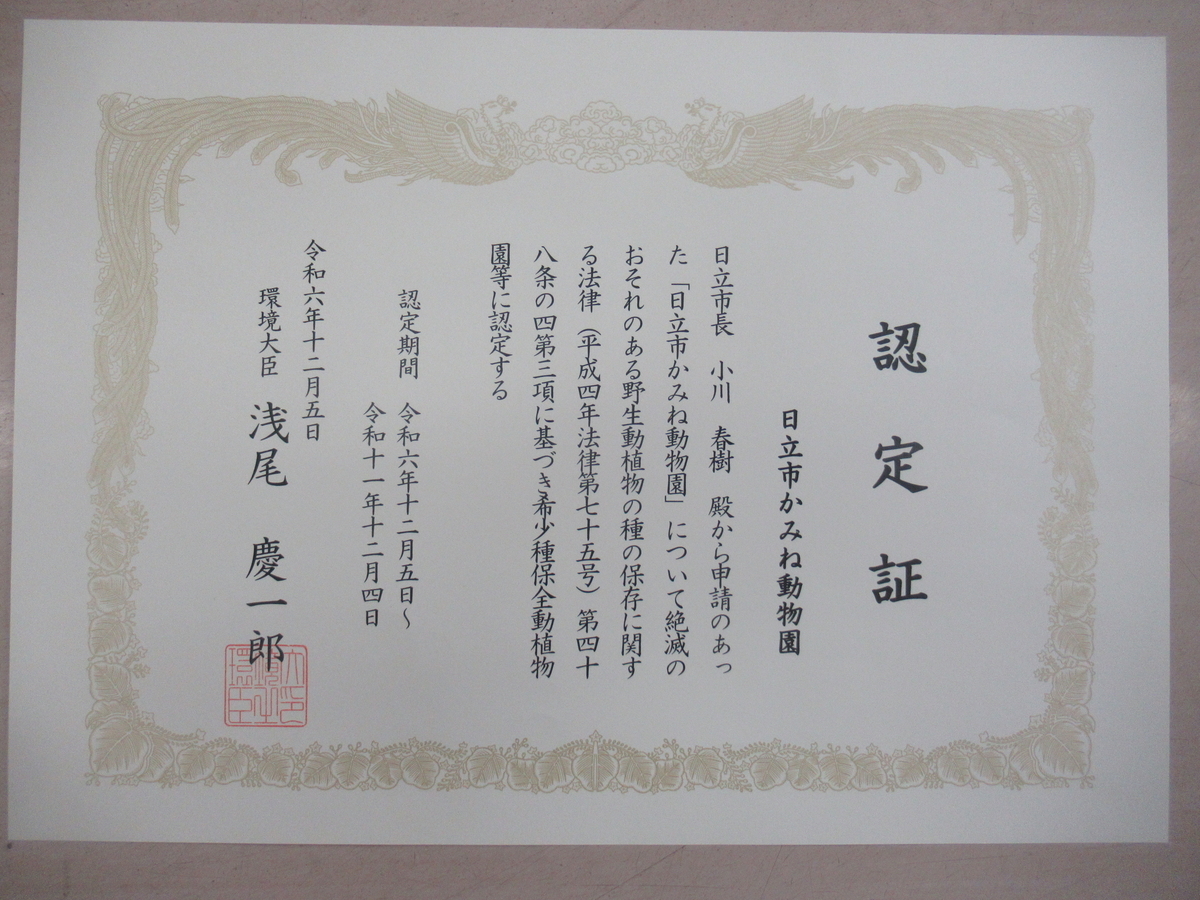 認定証
日立市かみね動物園
日立市長　小川　春樹　殿から申請のあっ
た「日立市かみね動物園」について絶滅の
おそれのある野生動植物の種の保存に関す
る法律（平成四年法律第七十五号）第四十
八条の四第三項に基づき希少種保全動植物
園等に認定する
認定期間　令和六年十二月五日～
令和十一年十二月四日
令和六年十二月五日
環境大臣　浅尾　慶一郎